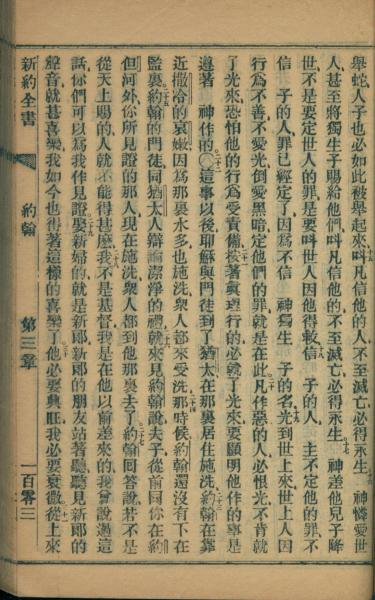 舉蛇人子也必如此被舉起來叫凡信他的人不至滅亡必得永生 神憐愛世
人甚至將獨生子賜給他們叫凡信他的不至滅亡必得永生 神差他兒子降
世不是要定世人的罪是要叫世人因他得救信 子的人 主不定他的罪不
信 子的人罪已經定了因爲不信 神獨生 子的名光到世上來世上人因
行爲不善不愛光倒愛黑暗定他們的罪就是在此凡作惡的人必恨光不肯就
了光來恐怕他的行爲受責備按著眞理行的必就了光來要顯明他作的事是
遵著 神作的〇這事以後耶穌與門徒到了猶太在那裏居住施洗約翰在靠
近撒冷的哀嫩因爲那裏水多也施洗衆人都來受洗那時候約翰還沒有下在
監裏約翰的門徒同猶太人辯論潔淨的禮就來見約翰說夫子從前同你在約
但河外你所見證的那人現在施洗衆人都到他那裏去了約翰回答說若不是
從天上賜的人就不能得甚麼我不是基督我是在他以前差來的我曾說過這
話你們可以爲我作見證娶新婦的就是新郎新郎的朋友站著聽聽見新郎的
聲音就甚喜樂我如今也得著這樣的喜樂了他必要興旺我必要衰微從上來
新約全書 約翰 第三章 一百零三